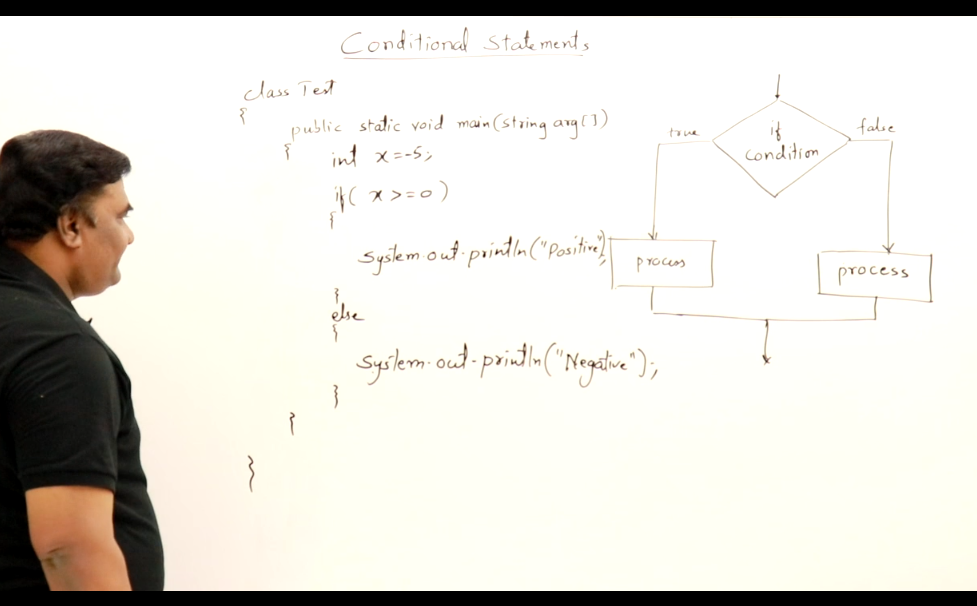 Conditional Statements
class Test
{
public static void main(string arg[])
{
int x=-5;
if( x>=0 )
{
System.out.println("Positive");
}
else
{
System.out.println("Negative");
}
}
}
if
condition
true
false
process
process